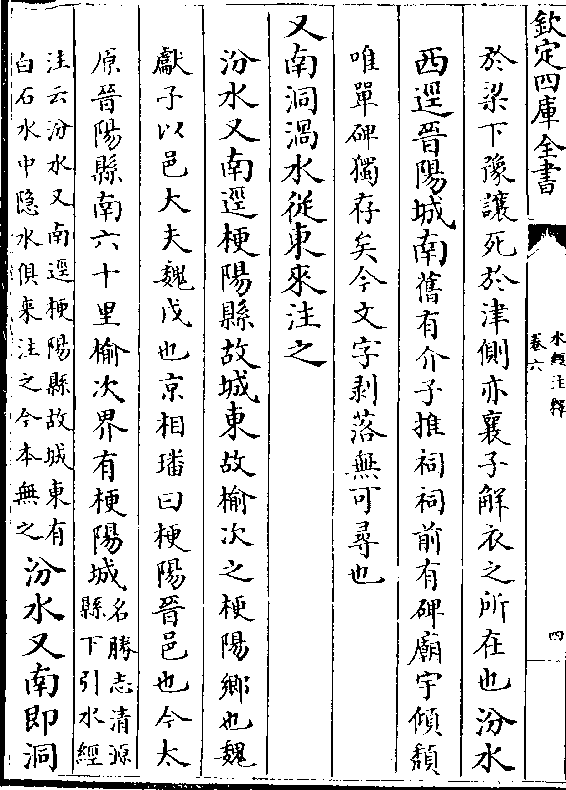 欽定四庫全書
水經注釋
卷六
四
於梁下豫讓死於津側亦襄子解衣之所在也汾水
西逕晉陽城南舊有介子推祠祠前有碑廟宇傾頹
唯單碑獨存矣今文字剥落無可尋也
又南洞渦水從東來注之
汾水又南逕梗陽縣故城東故榆次之梗陽鄉也魏
獻子以邑大夫魏戊也京相璠曰梗陽晉邑也今太
原晉陽縣南六十里榆次界有梗陽城
名勝志清源
縣下引水經
注云汾水又南逕梗陽縣故城東有
白石水中隐水俱來注之今本無之
汾水又南即洞